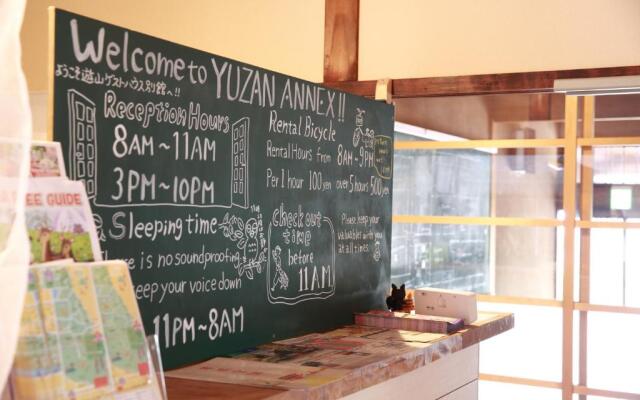 Welcome to YUZAN ANNEX!!
ようこそ遊山ゲストハウス別館へ!!
Reception Hours
8AM~11AM
3PM~10PM
Sleeping time
There is no soundproofing
keep your voice down
11PM~8AM
Rental Bicycle
Rental Hours from 8AM~9PM
Per 1 hour 100yen over 5hours 500yen
check out
time
before
11AM
Please keep your
valuables with you
at all times.
FREE GUIDE